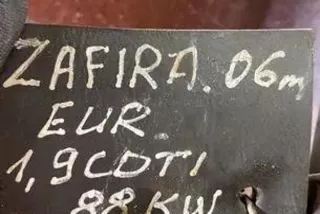 ZAFIRA. 06m
EUR.
1,9CDTI
88 KW